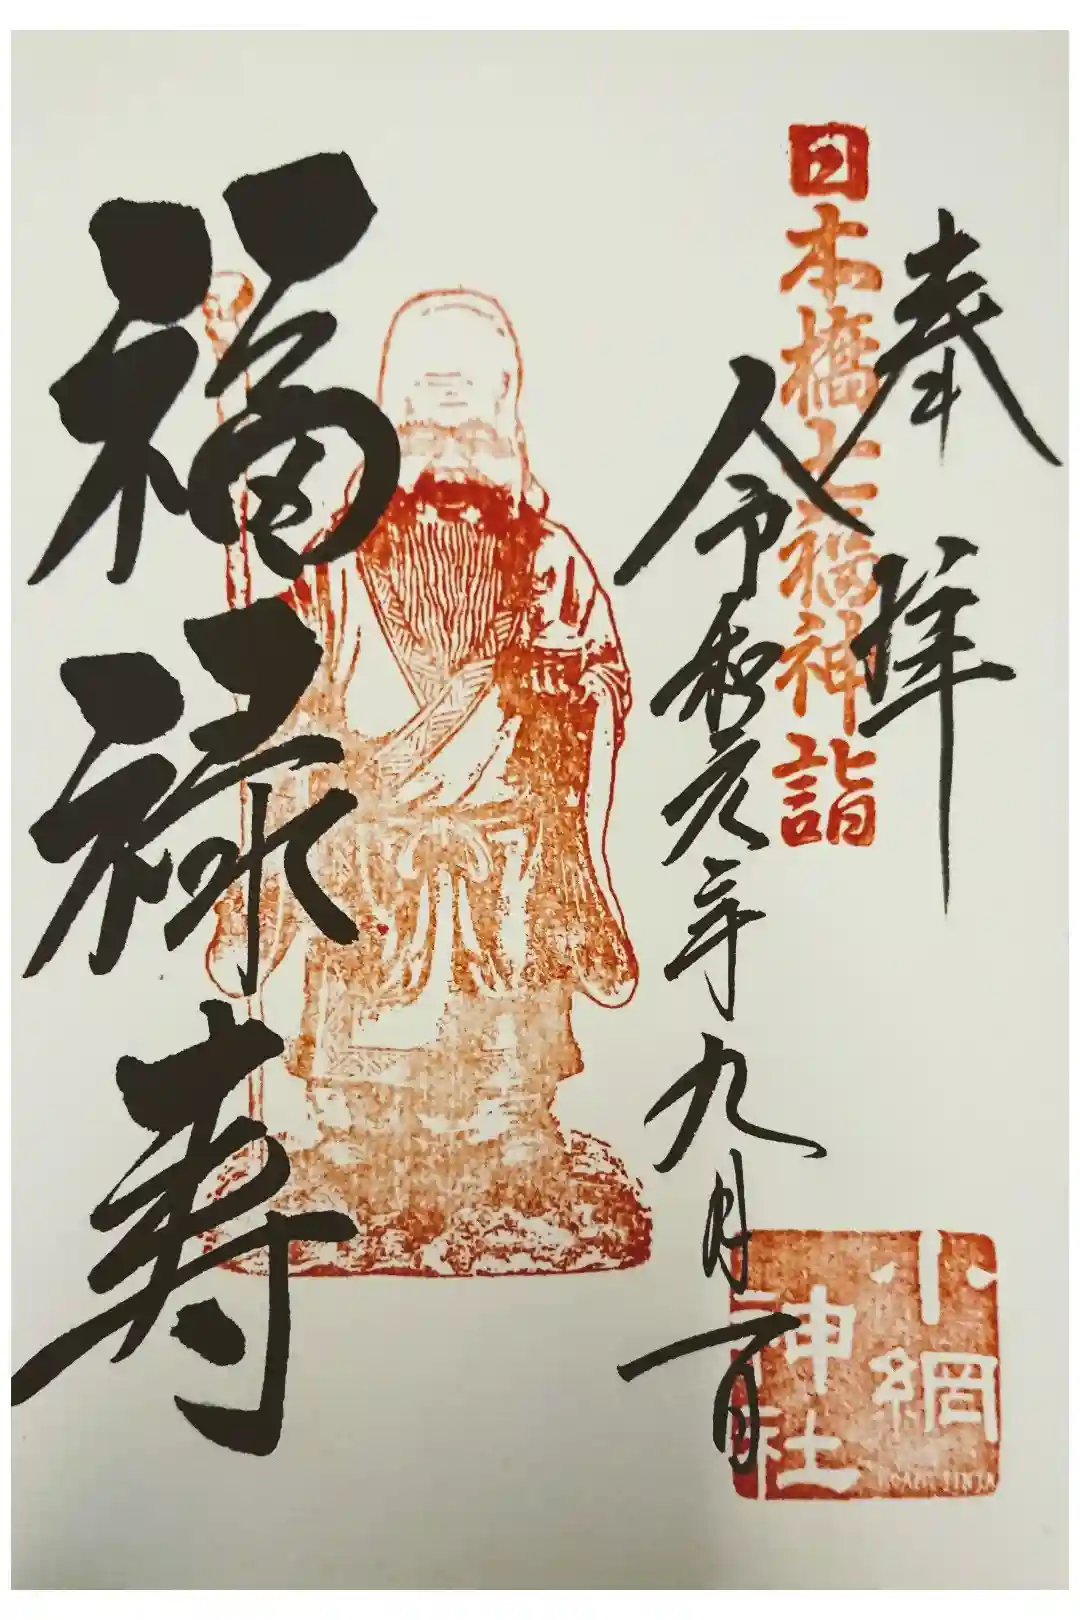 奉拝
日本橋七福神詣
令和元年九月一日
福禄寿
小網
神社
KOAMI JINJA